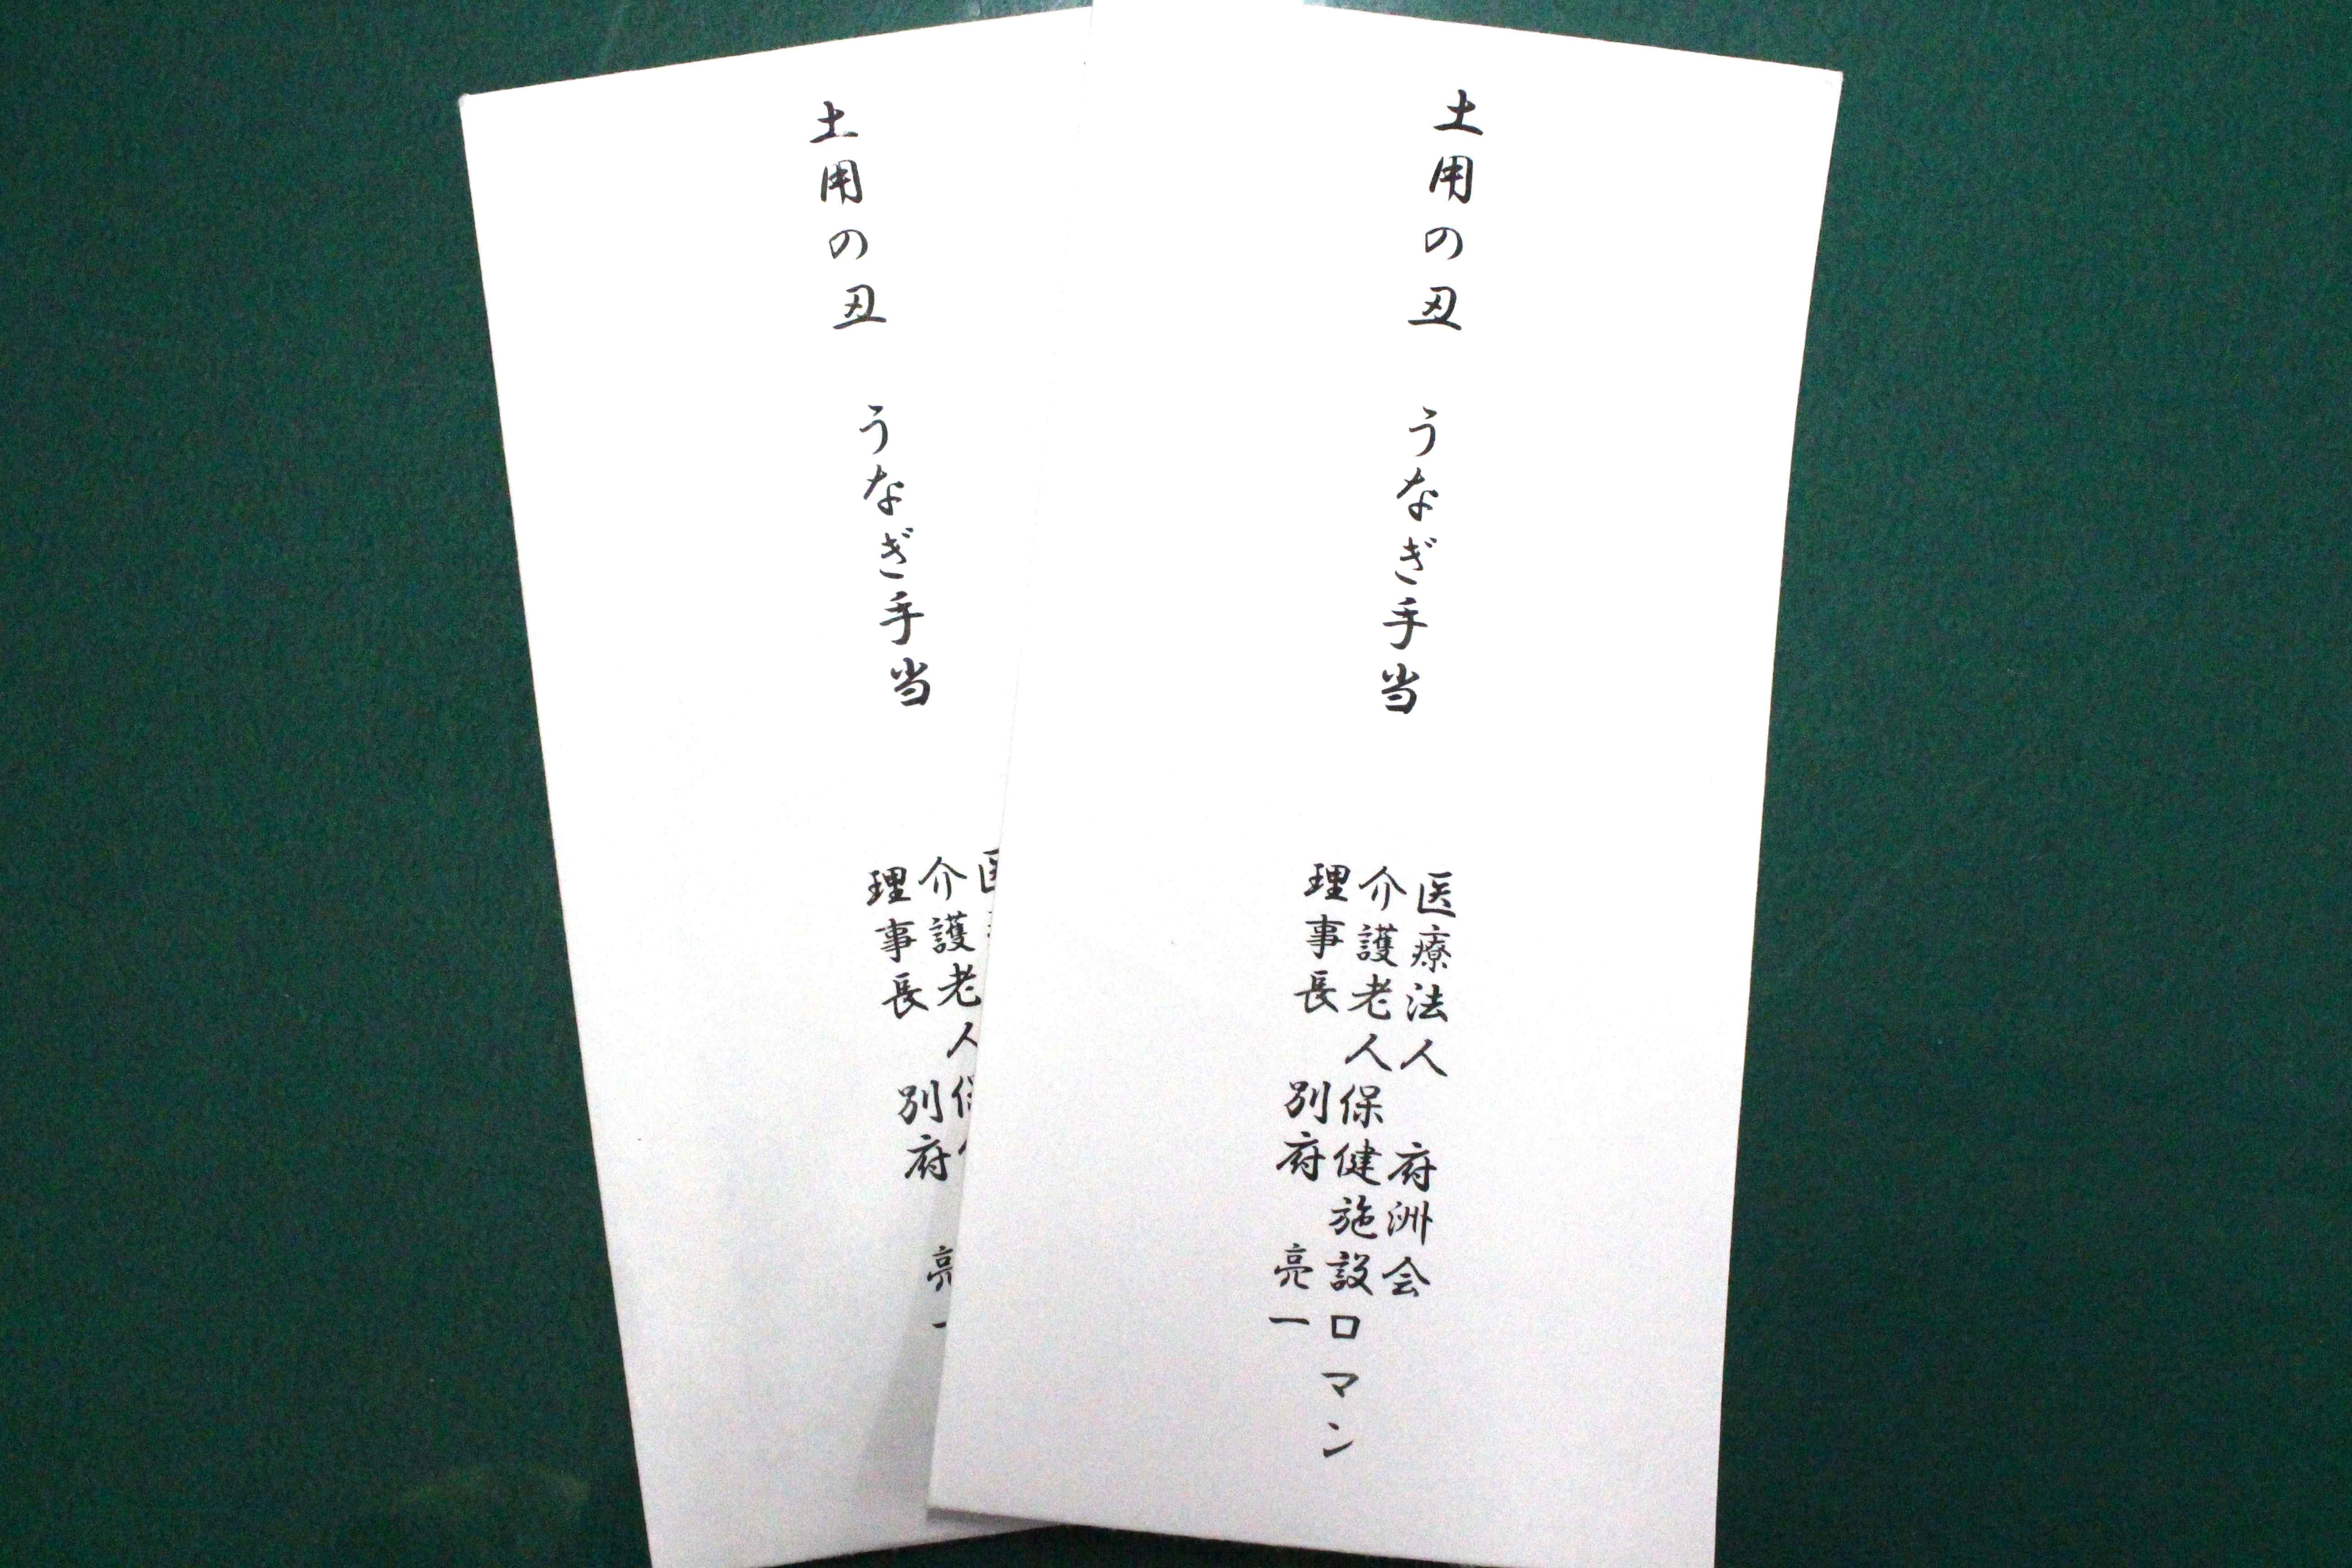 土用の丑　うなぎ手当
医療法人　府洲会
介護老人保健施設ロマン
理事長　別府　亮一
土用の丑　うなぎ手当
医
介護老人保
理事長　別府　亮一